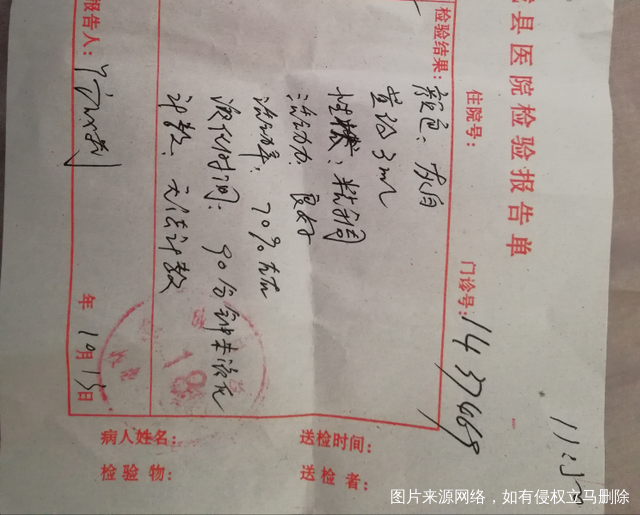 县医院检验报告单
11:25
住院号:
门诊号: 1437469
检验结果: 颜色: 灰白
量约3ml
性状: 粘稠
活动力: 良好
活动率: 70%左右
液化时间: 90分钟未液化
计数: 无法计数
报告人:
年10月13日
病人姓名:
送检时间:
检验物:
送检者:
图片来源网络,如有侵权立马删除